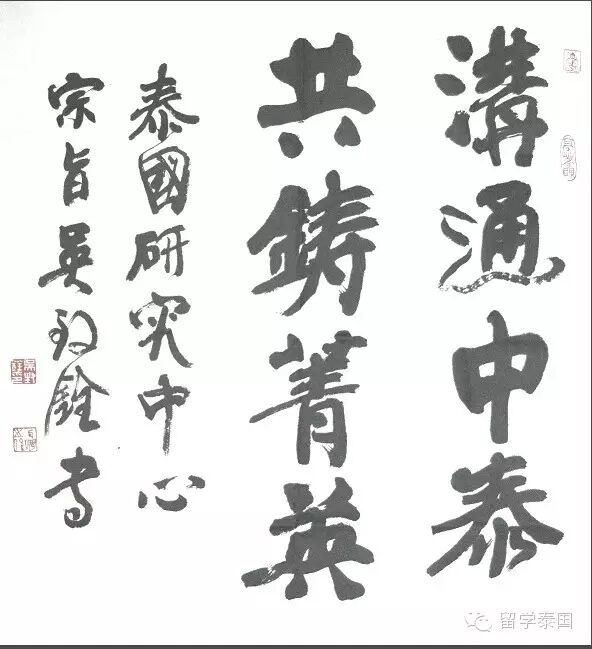 溝通中泰
共鑄菁英
泰國研究中心
宗旨吳銓書
留学泰国